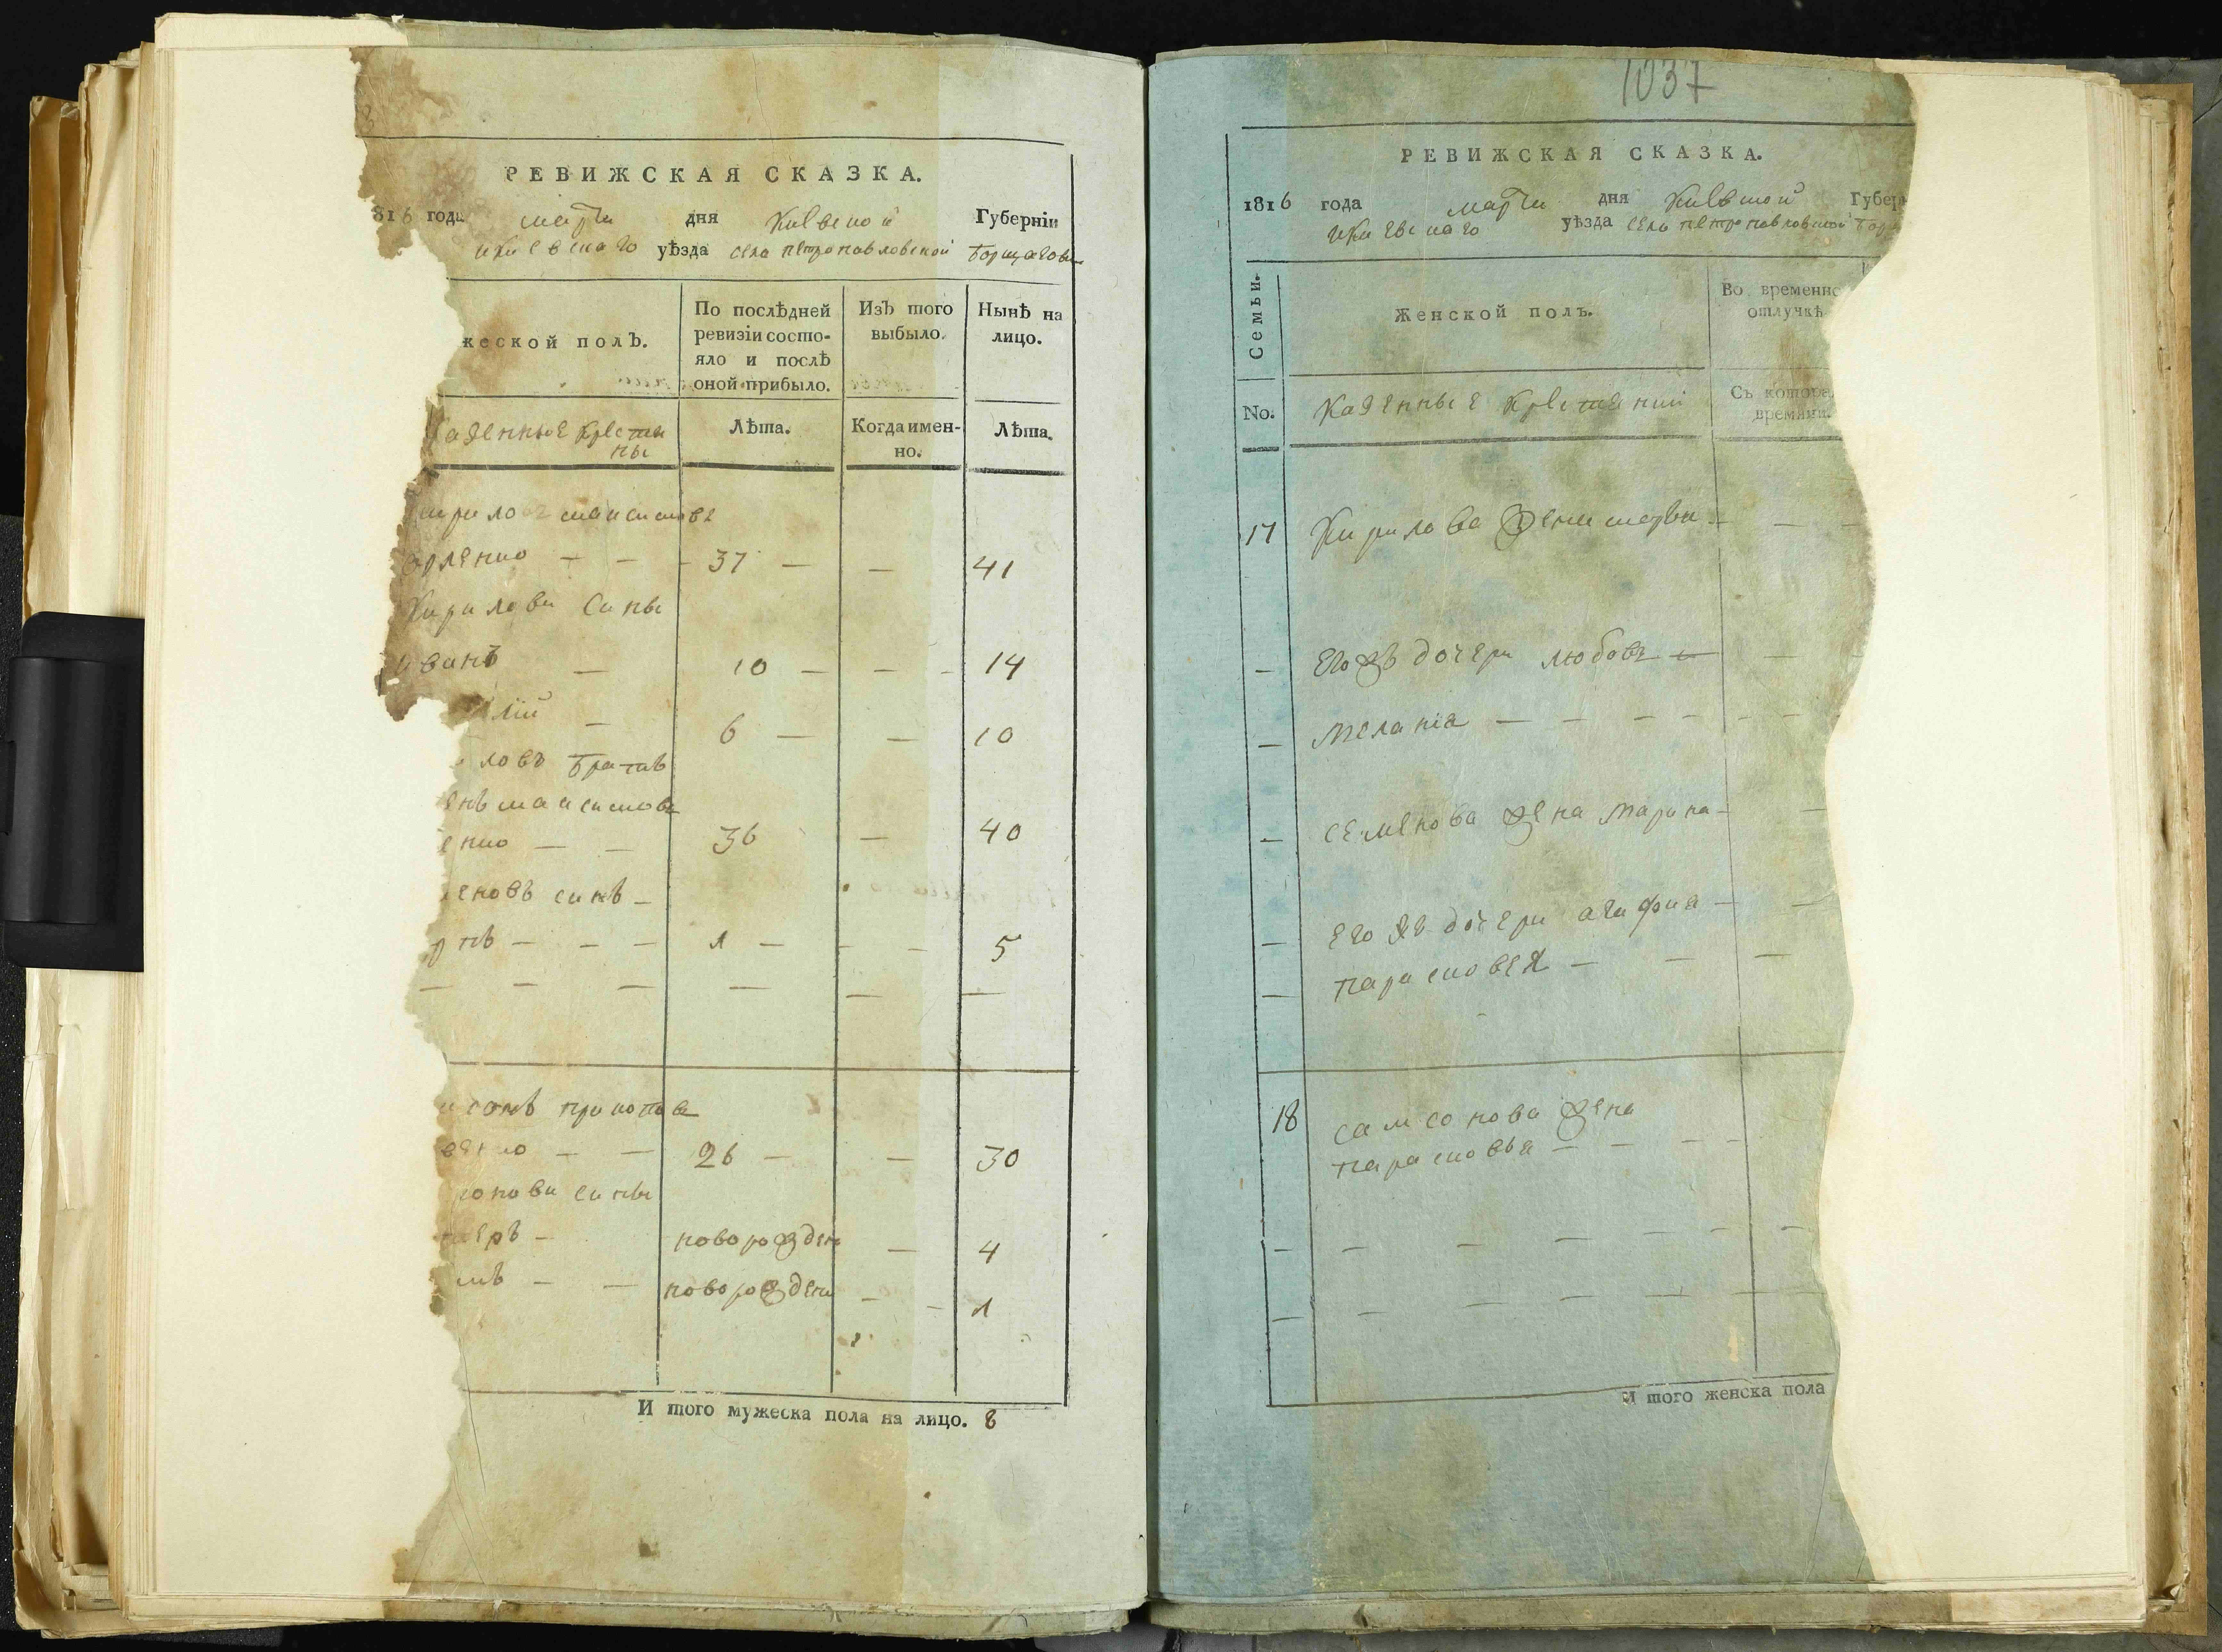 РЕВИЖСКАЯ СКАЗКА.
816 года марта дня Киевской Губерніи
Киевскаго уѣзда села петропавловской борщаговки
жеской полЪ.
По послѣдней
ревизіи состо-
яло и послѣ
оной прибыло.
ИзЪ того
выбыло.
Нынѣ на
лицо.
казенные крестя
ны
Лѣта.
Когда имен-
но.
Лѣта.
кирило максимовъ
37 41
Кирилови сины
иванъ 10 14
лій 6 10
ловъ братъ
енъ максимовъ
енко 36 40
еновъ синъ
1 5
сонъ прокоповъ
26 30
сонови сины
новорожден 4
новорожден 1
И того мужеска пола на лицо. 8
1037
РЕВИЖСКАЯ СКАЗКА.
1816 года марта дня Киевской Губер
Киевскаго уѣзда села петропавловской бор
Семьи.
Женской полЪ.
Во временно
отлучкѣ
No.
казенные крестяни
Съ котора
времяни.
17 Кирилова жена
егожъ дочери любовъ
меланія
семенова жена марина
его жъ дочери агафия
парасковея
18 самсонова жена
парасковья
И того женска пола